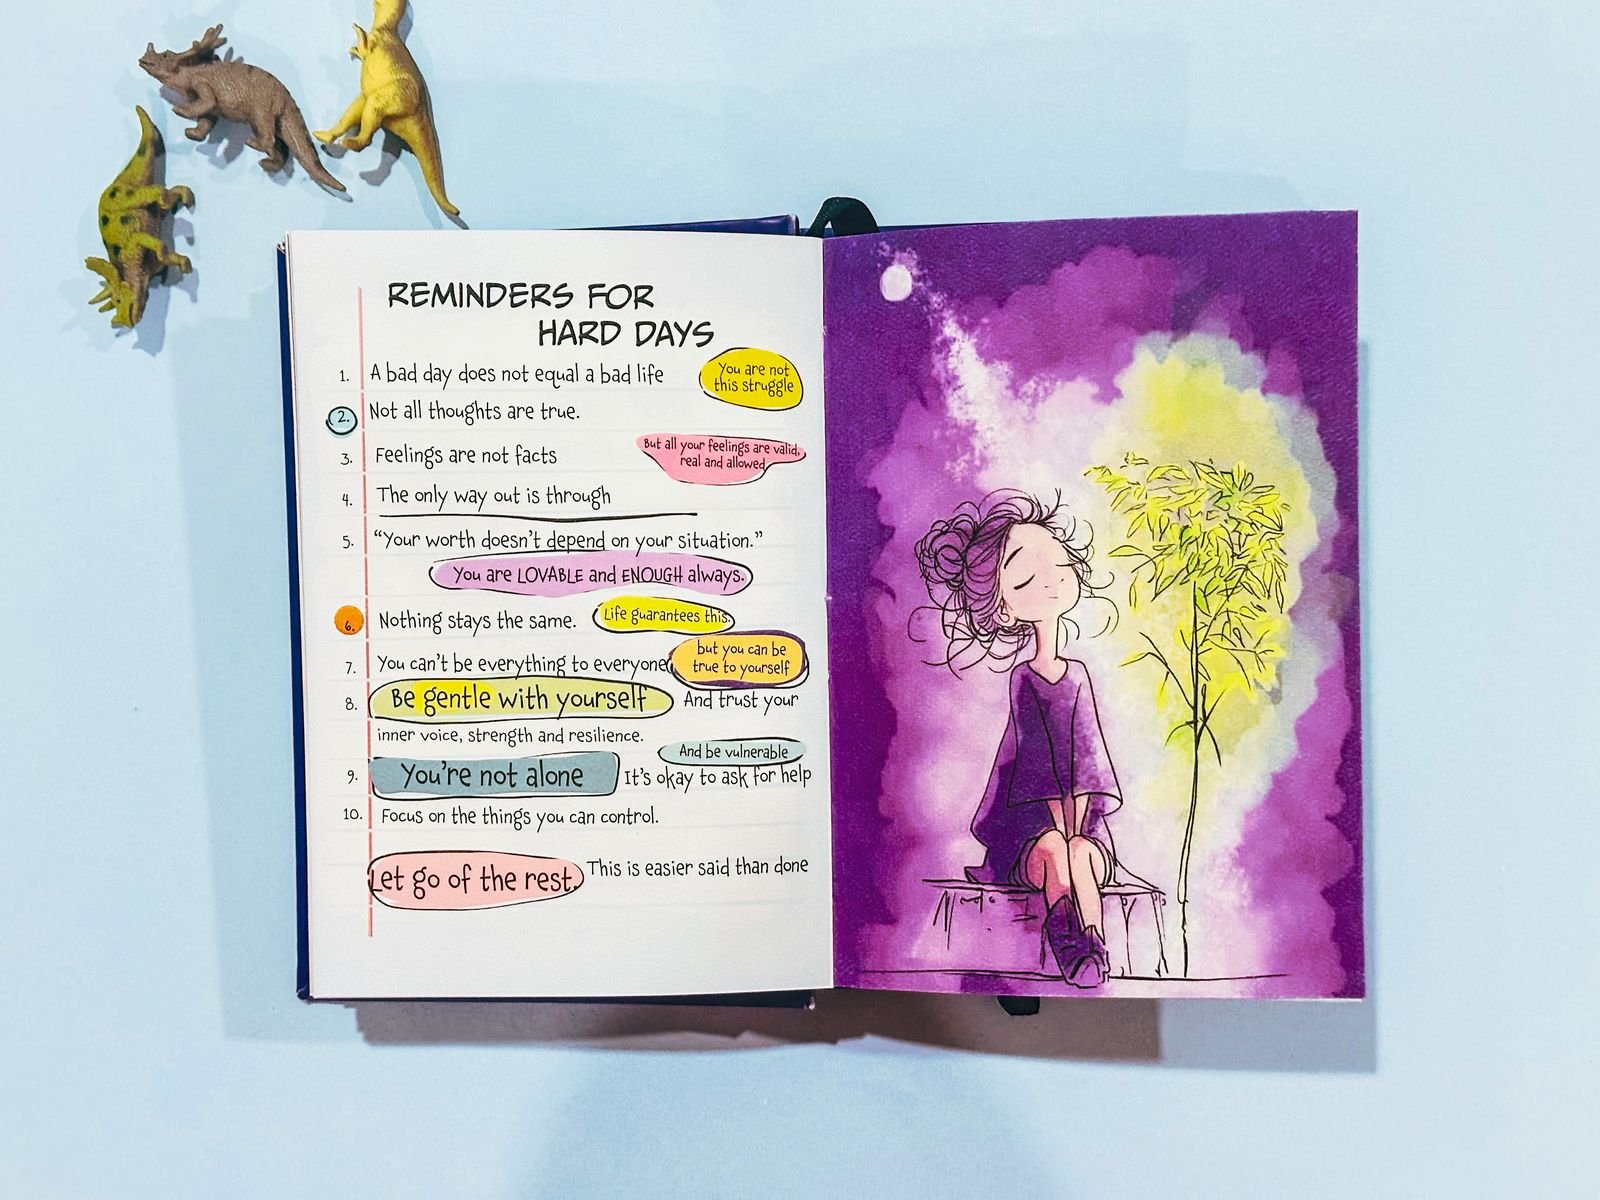 REMINDERS FOR
HARD DAYS
1. A bad day does not equal a bad life
You are not
this struggle
2. Not all thoughts are true.
3. Feelings are not facts
But all your feelings are valid,
real and allowed
4. The only way out is through
5. “Your worth doesn’t depend on your situation.”
You are LOVABLE and ENOUGH always.
6. Nothing stays the same. Life guarantees this.
7. You can’t be everything to everyone
but you can be
true to yourself
8. Be gentle with yourself And trust your
inner voice, strength and resilience.
And be vulnerable
9. You’re not alone It’s okay to ask for help
10. Focus on the things you can control.
Let go of the rest. This is easier said than done